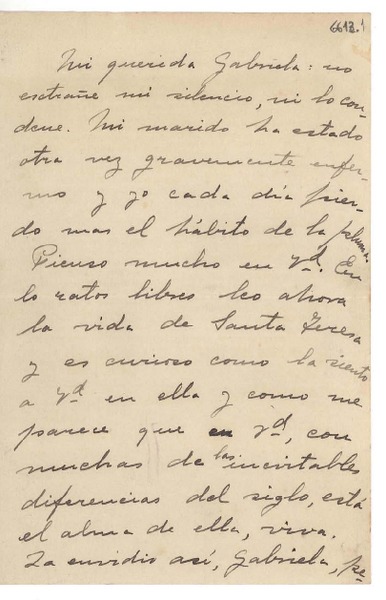 6613.1
Mi querida Gabriela: no
extrañe mi silencio, ni lo con-
dene. Mi marido ha estado
otra vez gravemente enfer-
mo y yo cada día pier-
do mas el hábito de la pluma.
Pienso mucho en Vd. En
lo ratos libres leo ahora
la vida de Santa Teresa
y es curioso como la siento
a Vd en ella y como me
parece que en Vd, con
muchas de las inevitables
diferencias del siglo, está
el alma de ella, viva.
La envidio así, Gabriela, pe